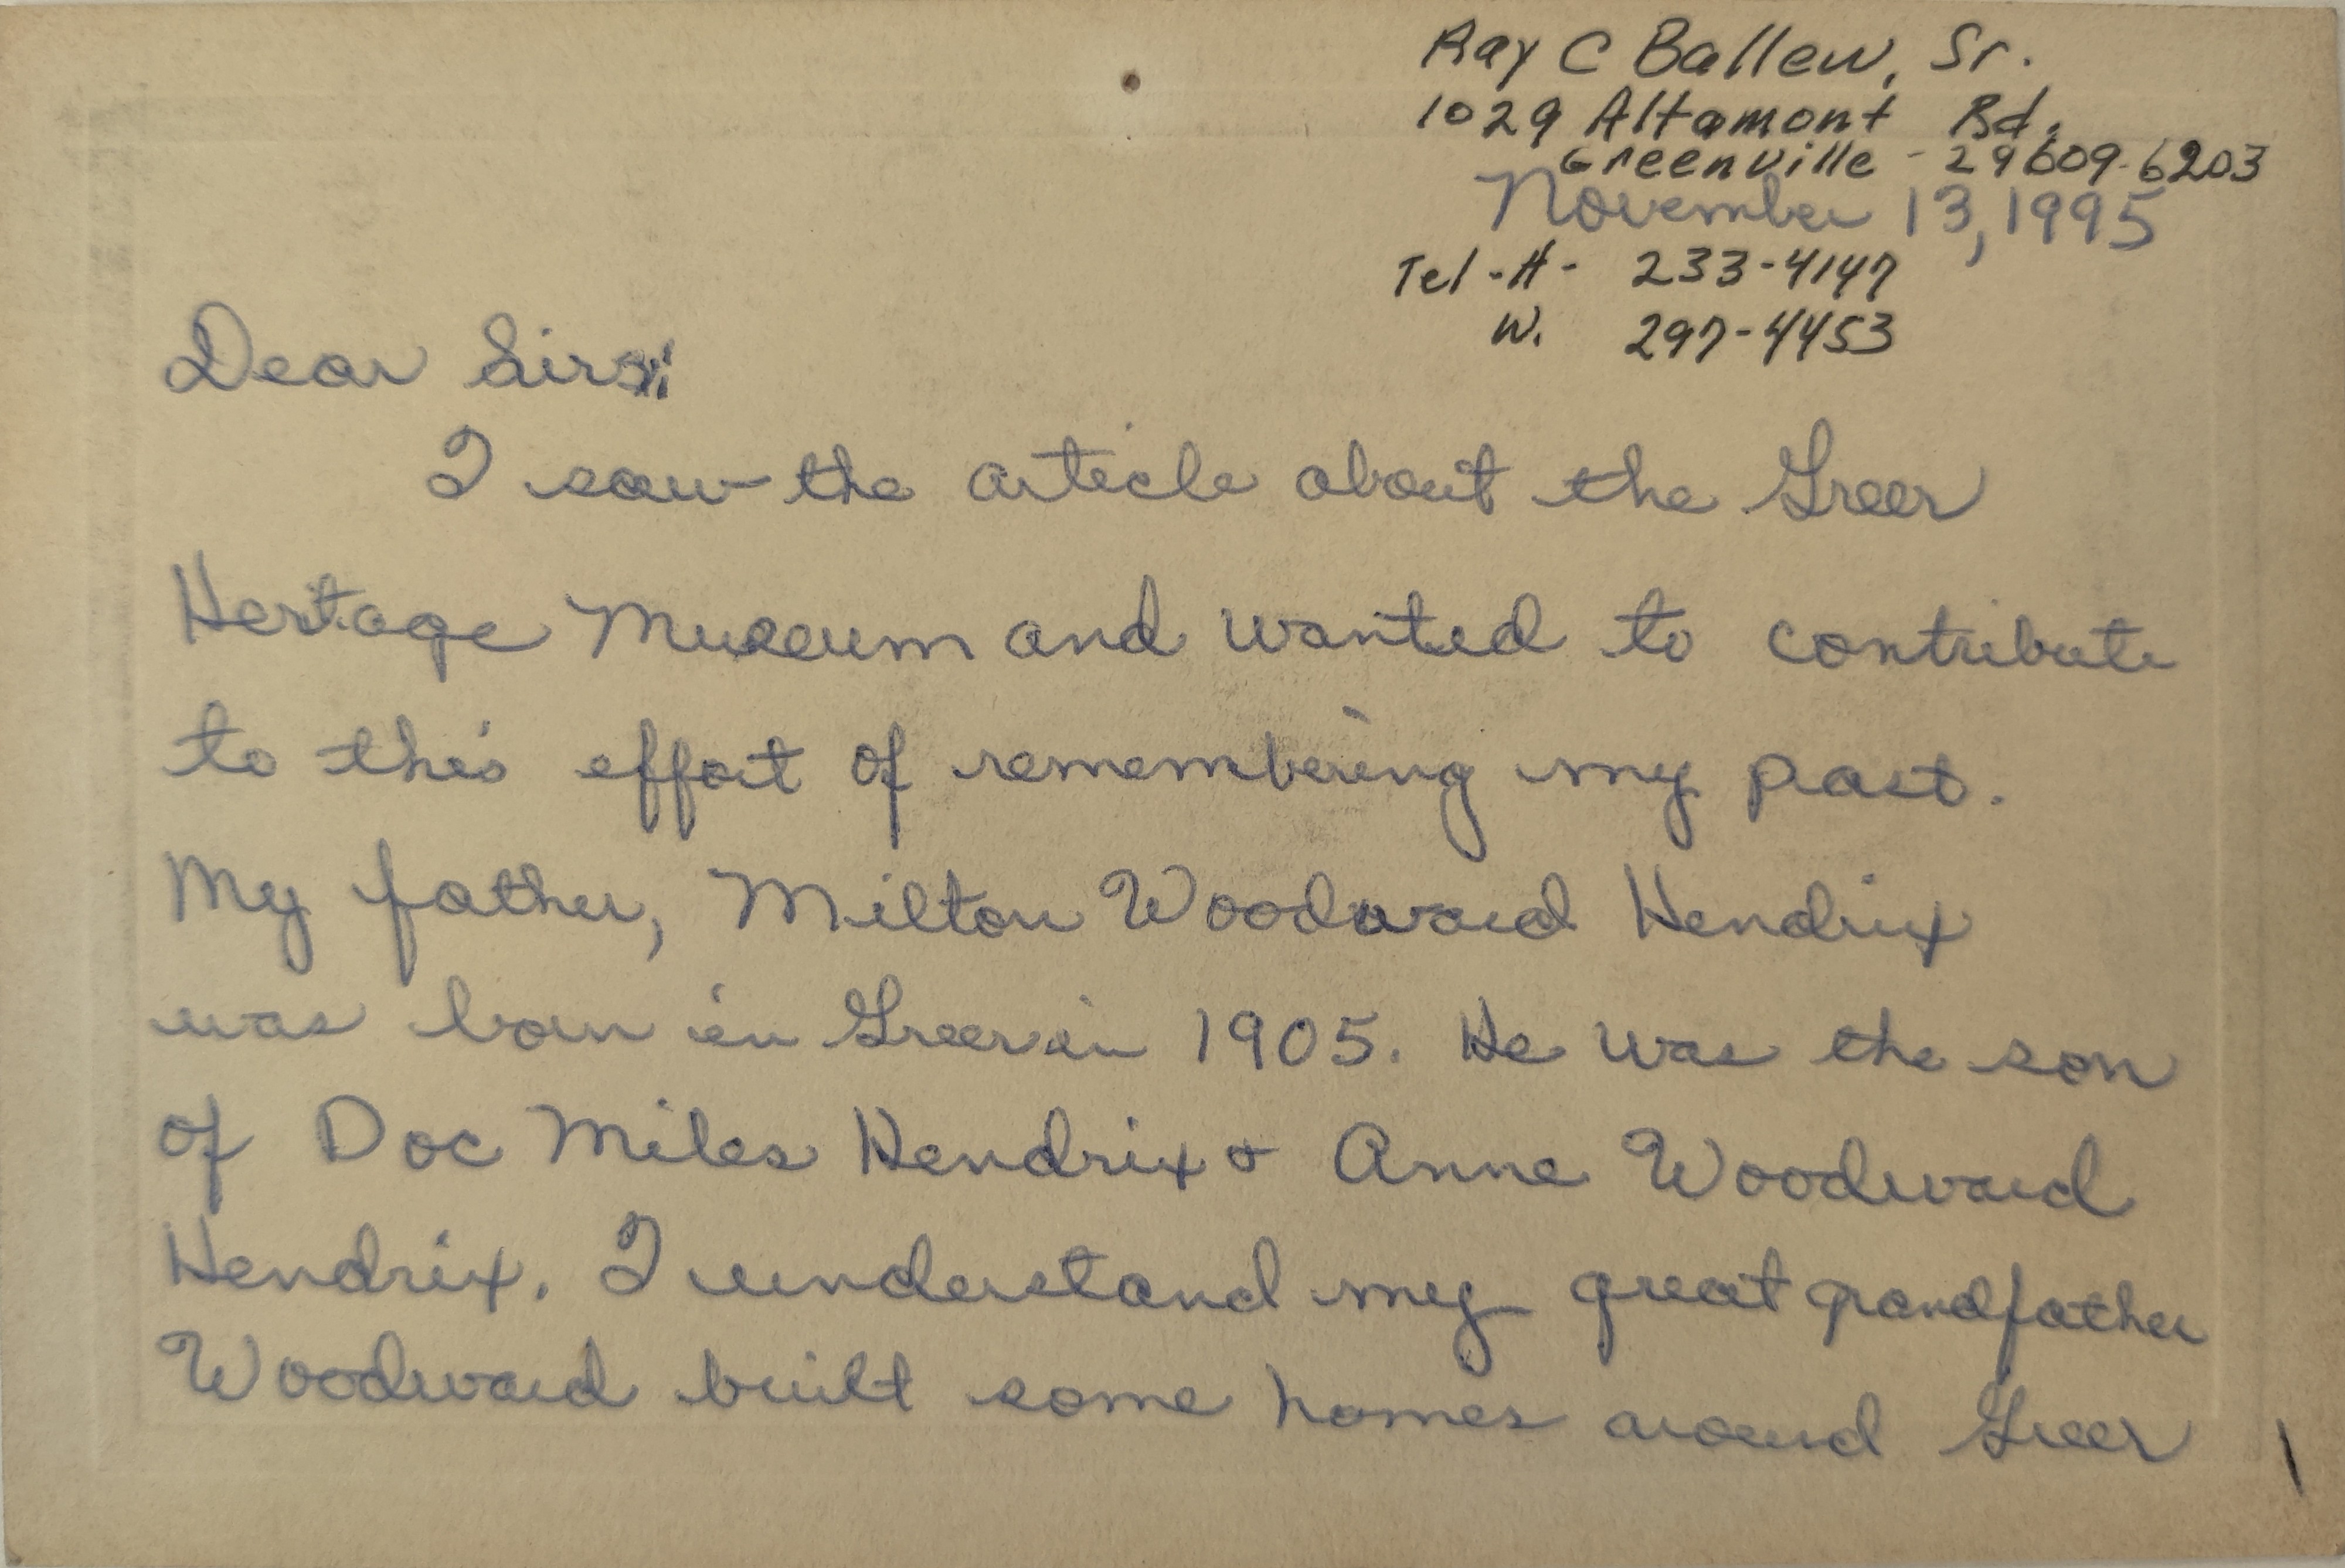 Ray C Ballew, Sr.
1029 Altamont Rd.
Greenville - 29609-6203
November 13, 1995
Tel - H - 233-4147
W. 297-4453
Dear Sirs:
I saw the article about the Greer
Hertage Museum and wanted to contribute
to this effort of remembering my past.
My father, Milton Woodward Hendrix
was born in Greer in 1905. He was the son
of Doc Miles Hendrix & Anne Woodward
Hendrix. I understand my great grandfather
Woodward built some homes around Greer
1